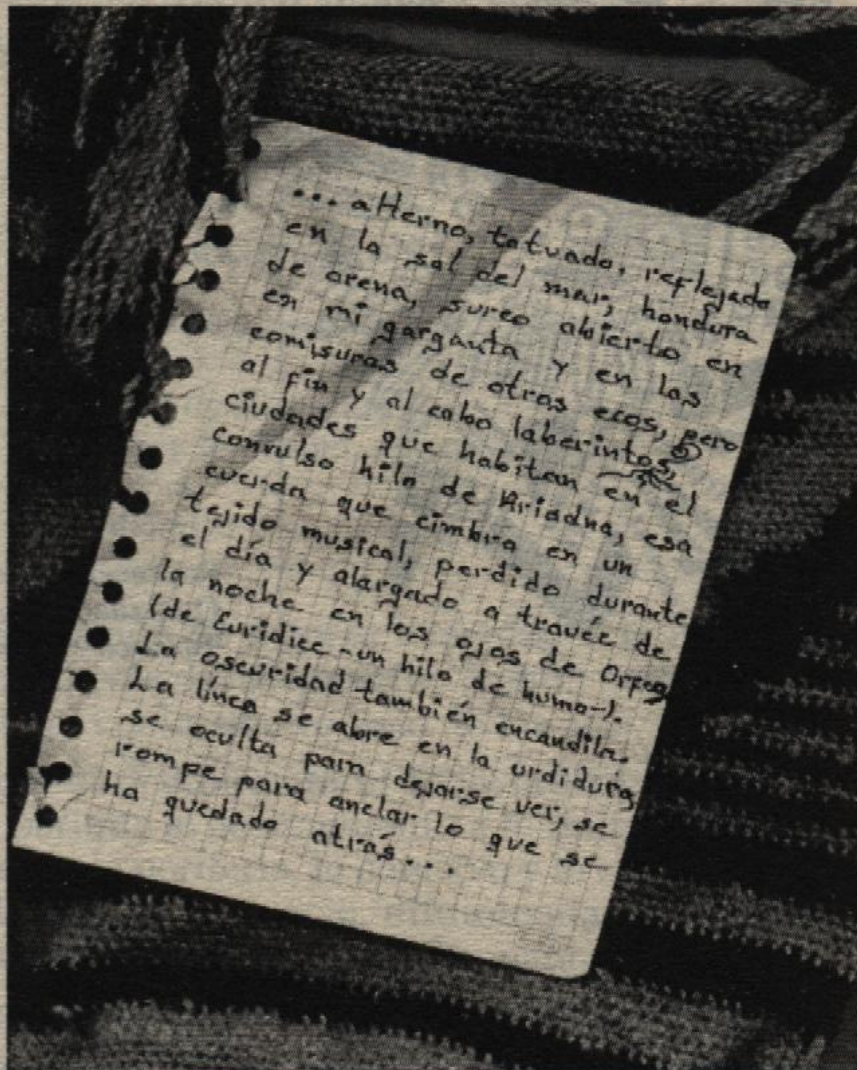 ... alterno, tatuado, reflejado
en la sal del mar, hondura
de arena, surco abierto en
en mi garganta y en las
comisuras de otros ecos, pero
al fin y al cabo laberintos,
ciudades que habitan en el
convulso hilo de Ariadna, esa
cuerda que cimbra en un
tejido musical, perdido durante
el día y alargado a través de
la noche en los ojos de Orfeo
(de Eurídice -un hilo de humo-).
La oscuridad también encandila.
La línea se abre en la urdidura,
se oculta para dejarse ver, se
rompe para anclar lo que se
ha quedado atrás...